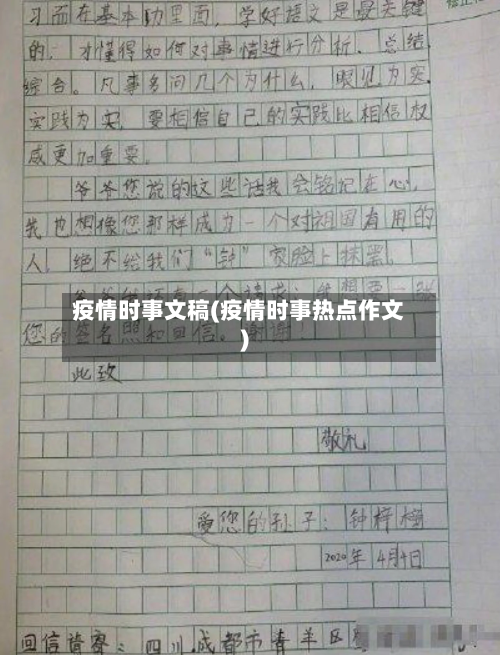 习而在基本功里面，学好语文是最关键
的，才懂得如何对事情进行分析、总结、
综合。凡事多问几个为什么，眼见为实，
实践为实，要相信自己的实践比相信权
威更加重要。
爷爷您说的这些话我会铭记在心，
我也想像您那样成为一个对祖国有用的
人，绝不给我们“钟”家脸上抹黑。
疫情时事文稿(疫情时事热点作文
)
您的签名照和回信。谢谢！
此致
敬礼
爱您的孙子：钟梓
2020年4月4日
回信皆寄：四川成都市青羊区